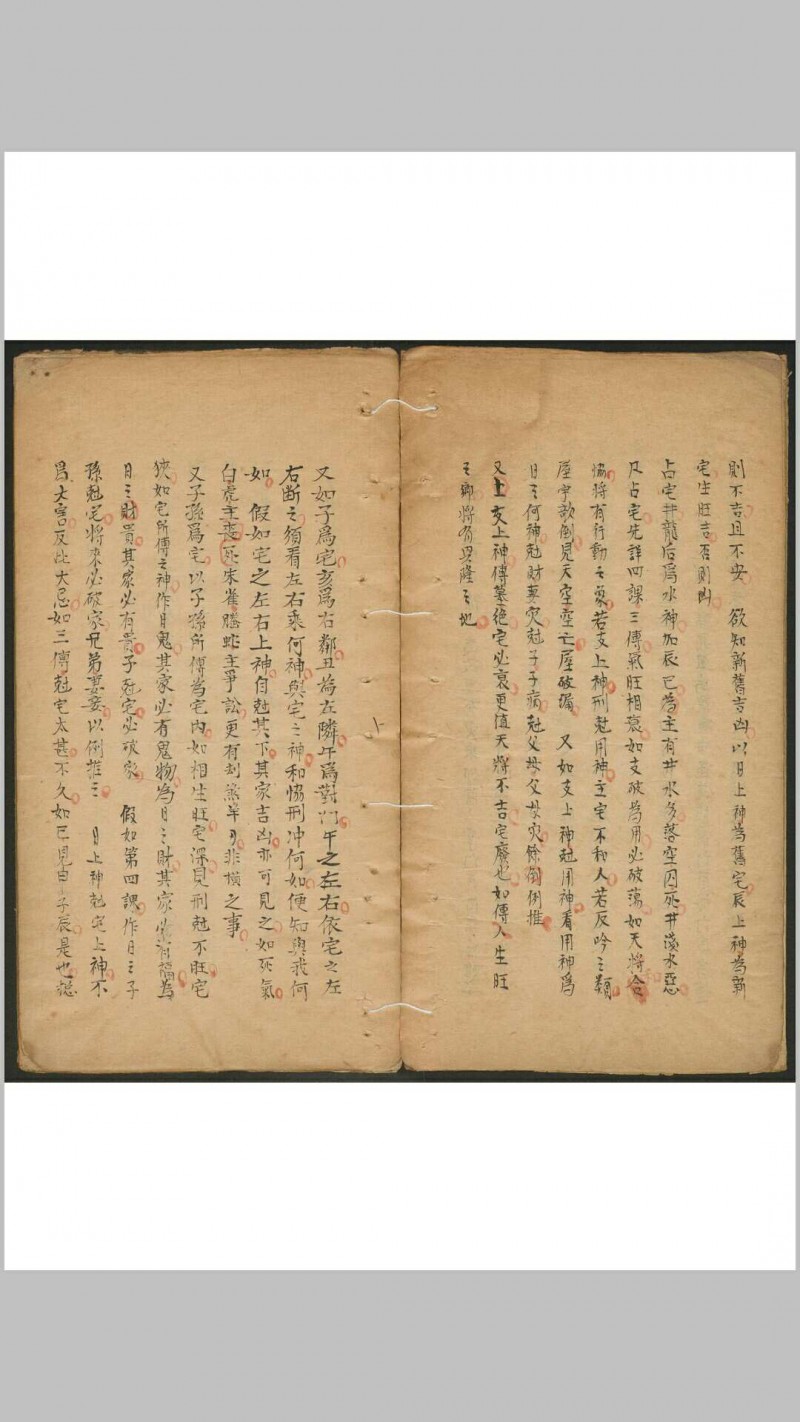 則不吉且不安　欲知新舊吉凶以日上神為舊宅辰上神為新
宅生旺吉否則凶
占宅井龍后為水神加辰巳為主有井水多落空囚死井淡水惡
凡占宅先詳四課三傳氣旺相衰如支破為用必破蕩如天將合
恊將有行動之象若支上神刑尅用神主宅不和人若反吟之類
屋宇欹倒見天空空亡屋破漏　又如支上神尅用神看用神為
日之何神尅財妻灾尅子子病尅父母父母灾餘倒例推
又上支上神傳墓絕宅必衰更值天將不吉宅廢也如傳入生旺
之鄉將有興隆之地
又如子為宅亥為右鄰丑為左隣午為對門午之左右依宅之左
右断之須看左右乘何神與宅之神和恊刑冲何如便知與我何
如　假如宅之左右上神自尅其下其家吉凶亦可見之如死氣
白虎主喪死朱雀螣蛇主爭訟更有刦煞羊刃非橫之事
又子孫為宅以子孫所傳為宅內如相生旺宅深見刑尅不旺宅
狹如宅所傳之神作日鬼其家必有鬼物為日之財其家必有福為
日之財貴其家必有貴子尅宅必破家　假如第四課作日之子
孫尅宅將來必破家兄弟妻妾以例推之　日上神尅宅上神不
昌大害反此大忌如三傳尅宅太甚不久如巳見申子辰是也